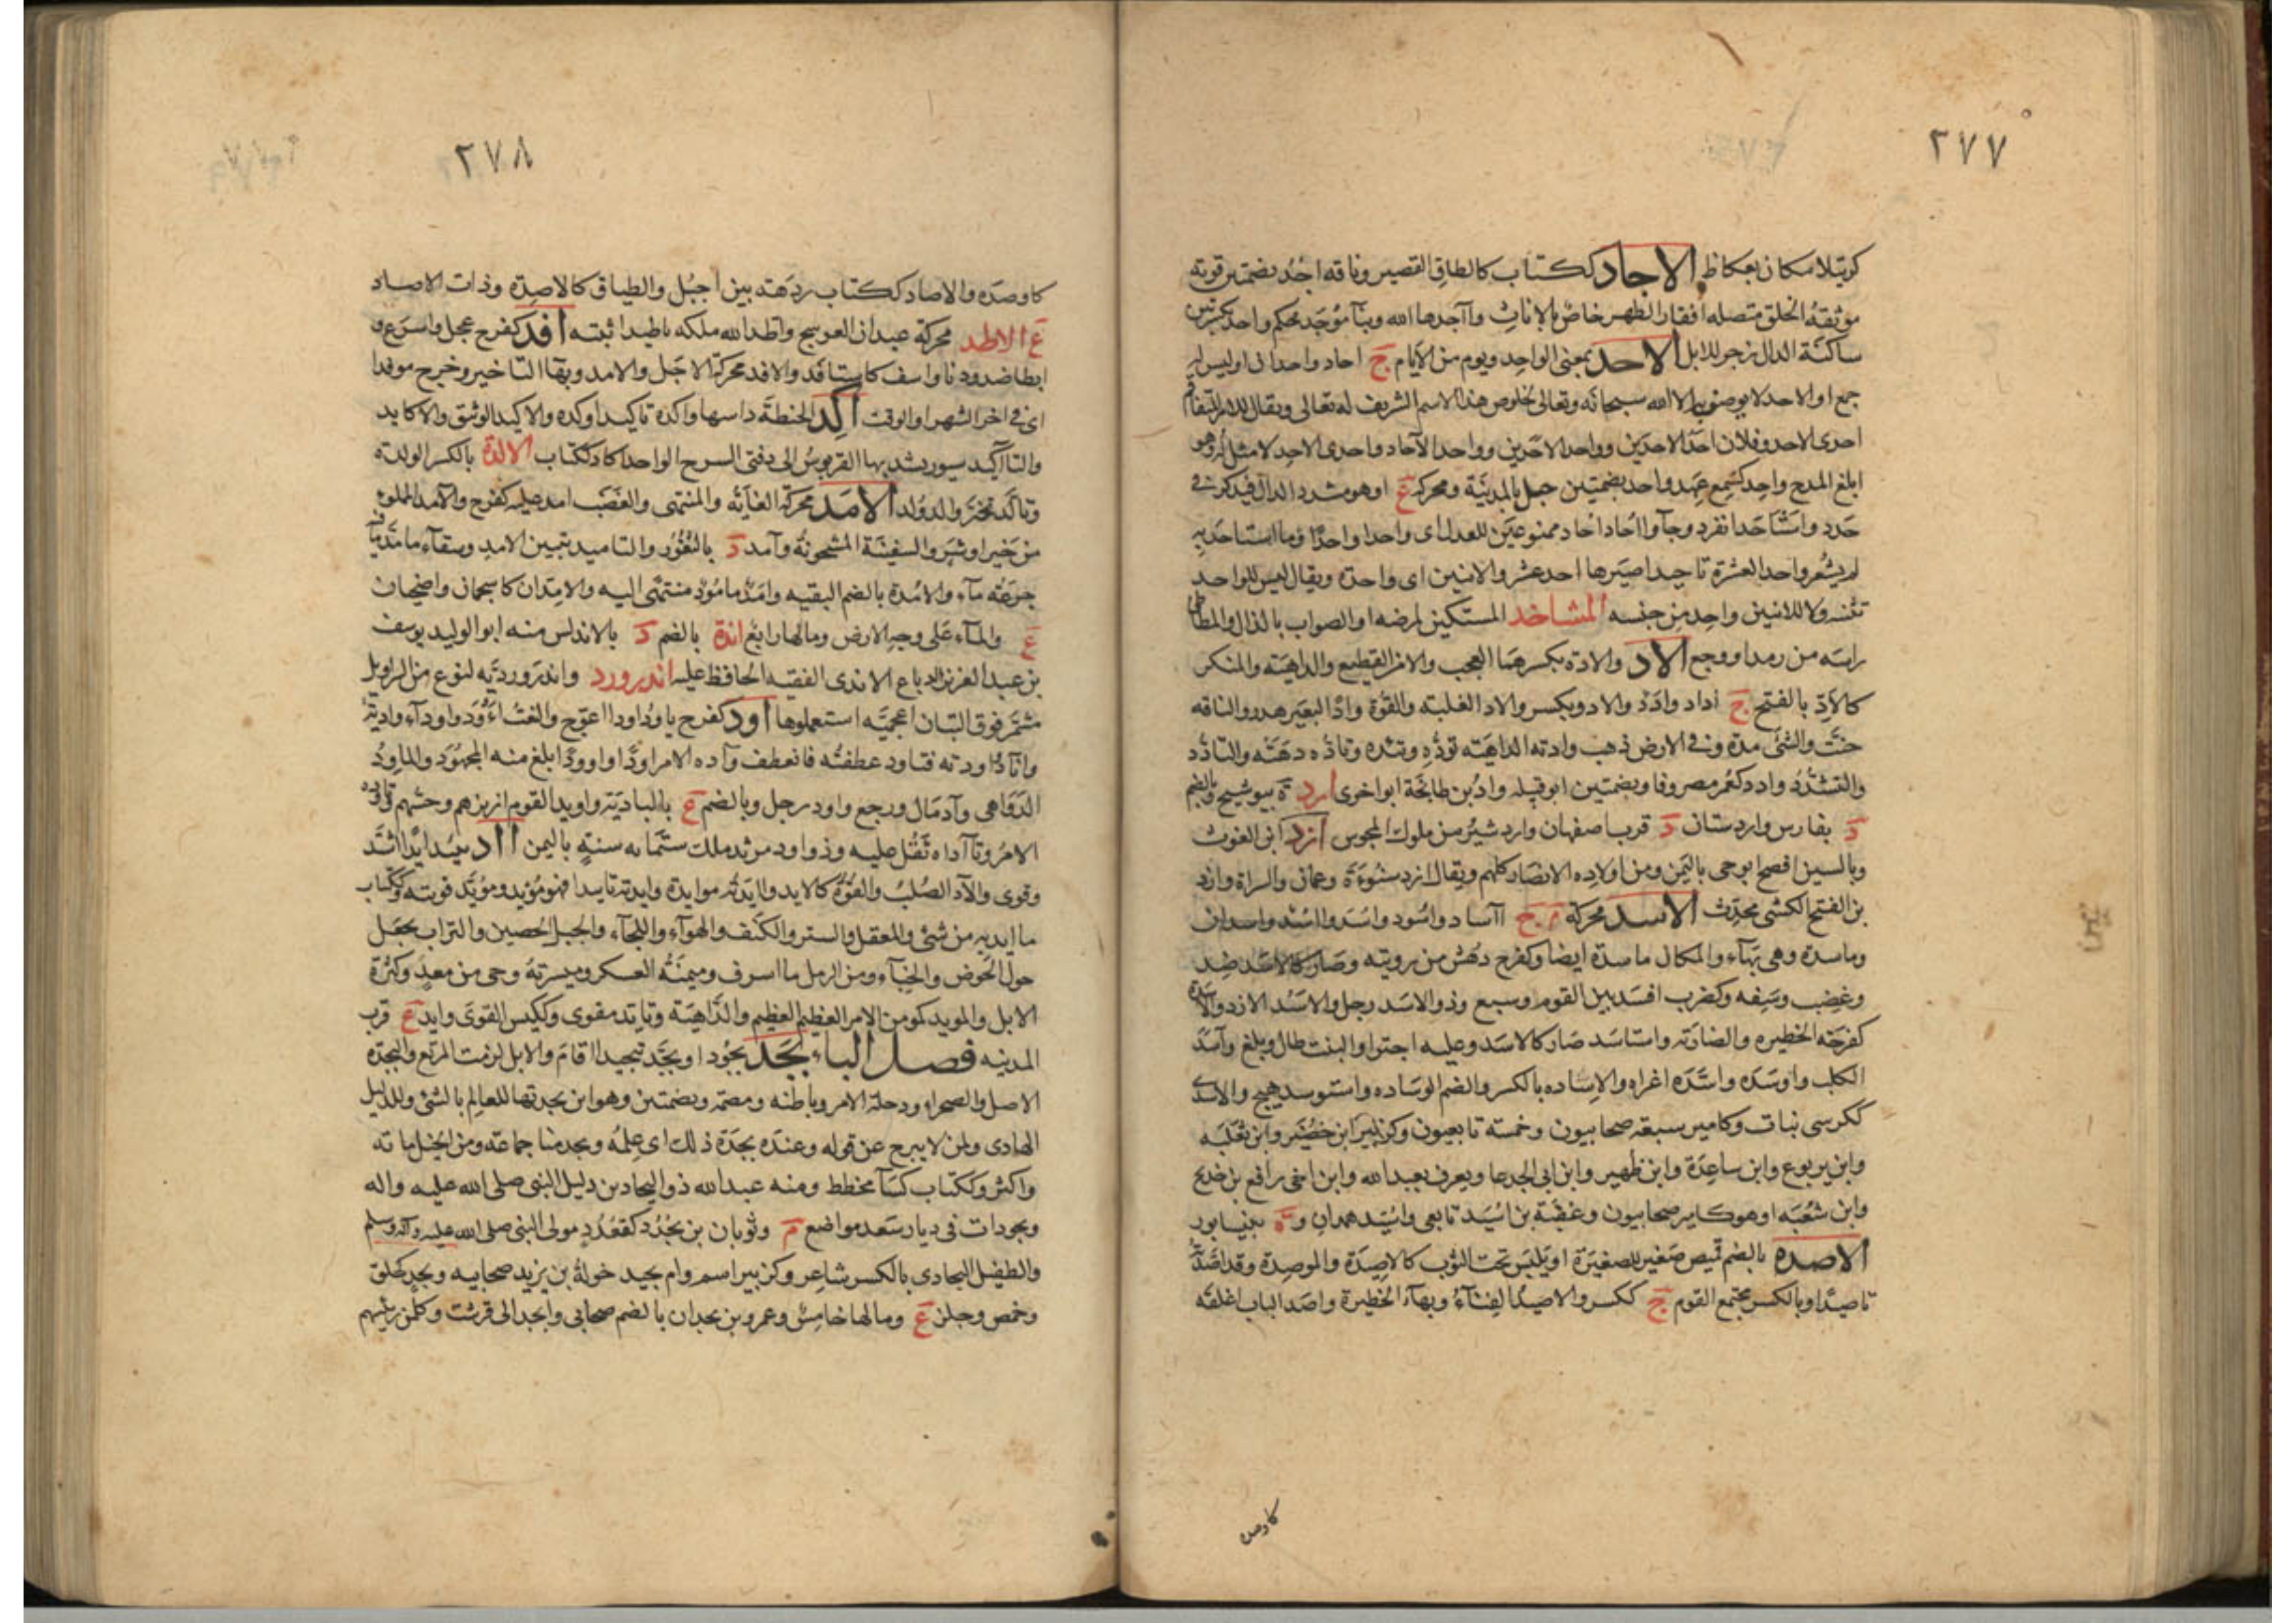 ٢٧٧
كوتيلا مكان بعكاظ الاجاد ككتاب كالطاق القصير وناقه اجد بضمتين قويه
موثقة الخلق متصله افقار الظهر خاص بالاناث وآجدها الله وبنآ مؤجد محكم واجد بكسرتين
ساكنة الدال زجر للابل الاحد بمعنى الواحد ويوم من الايام ج احاد واحدان اوليس له
جمع او الاحد لا يوصف به الا الله سبحانه وتعالى لخلوص هذا الاسم الشريف له تعالى ويقال للامر المتفاقم
احدى الاحد وفلان احد الاحدين وواحد الاحدين وواحد الآحاد واحدى الاحد لا مثل له وهو
ابلغ المدح واحد كسمع عهد واحد بضمتين جبل بالمدينة ومحركة ع او هو مشدد الدال فيذكر في
حدد واستأحد انفرد وجآوا احاد احاد ممنوعين للعدل اى واحدا واحدا وما استاحد به
لم يشعر واحد العشرة تاحيدا صيرها احد عشر والاثنين اى واحدة ويقال ليس للواحد
تثنيه ولا للاثنين واحد من جنسه المستأخد المستكين لمرضه او الصواب بالذال والمطأطئ
راسه من رمد او وجع الاد والادة بكسرهما العجب والامر الفظيع والداهية والمنكر
كالاد بالفتح ج اداد وادد والاد ويكسر والاد الغلبة والقوة واد البعير هدر والناقه
حنت والشئ مده وفى الارض ذهب وادته الداهية تؤده وتئده وتاده دهته والتادد
والتشدد وادد كعمر مصروفا وبضمتين ابو قبيله واد بن طابخة ابو اخرى ارد ة ببوشنج وبالضم
د بفارس واردستان د قرب اصفهان واردشير من ملوك المجوس ازد ابن الغوث
وبالسين افصح ابو حى باليمن ومن اولاده الانصار كلهم ويقال ازد شنوءة وعمان والسراة وازد
بن الفتح الكشى محدث الاسد محركة م ج آساد واسود واسد واسد واسدان
وماسدة وهى بهآء والمكان ماسدة ايضا وكفرح دهش من رويته وصار كالاسد ضد
وغضب وسفه وكضرب افسد بين القوم وسبع وذو الاسد رجل والاسد الازد والاسدة
كفرحة الحظيره والضارية واستاسد صار كالاسد وعليه اجترا والنبت طال وبلغ وآسد
الكلب واوسده واسده اغراه والاساده بالكسر والضم الوساده واستوسد هيج والاسدى
ككرسى نبات وكامير سبعة صحابيون وخمسة تابعيون وكزبير ابن حضير وابن ثعلبه
وابن يربوع وابن ساعدة وابن ظهير وابن ابى الجدعا ويعرف بعبد الله وابن اخى رافع بن خديج
وابن شعبه او هو كامير صحابيون وعقبة بن اسيد تابعى واسيد همدان و ة بنيسابور
الاصده بالضم قميص صغير للصغيرة او يلبس تحت الثوب كالاصيدة والموصدة وقد اصدته
تاصيدا وبالكسر مجتمع القوم ج ككسر والاصيد الفنآء وبهآء الحظيرة واصد الباب اغلقه
كاوصده
٢٧٨
كاوصده والاصاد ككتاب ردهة بين اجبل والطباق كالاصدة وذات الاصاد
ع الاطد محركة عيدان العوسج واطد الله ملكه تاطيدا ثبته افد كفرح عجل واسرع و
ابطا ضد ودنا واسف كاستافد والافد محركة الاجل والامد وبهآ التاخير وخرج موفدا
اى فى اخر الشهر او الوقت اكد الحنطة داسها واكده تاكيدا وكده والاكيد الوثيق والاكايد
والتاكيد سيور يشد بها القربوس الى دفتى السرج الواحد اكاد ككتاب الالدة بالكسر الولدة
وتالد تحير والدولد الامد محركة الغاية والمنتهى والغضب امد عليه كفرح والآمد المملوء
من خير او شر والسفينة المشحونة وآمد د بالثغور والتاميد تبيين الامد وسقآء مامد ما فيه
جرعة مآء والامدة بالضم البقيه وامد مامود منتهى اليه والامدان كاسحمان واضحيان
ع والمآء على وجه الارض وما لها رابع اندة بالضم د بالاندلس منه ابو الوليد يوسف
بن عبد العزيز الدباغ الاندى الفقيه الحافظ عليه اندرورد واندروردية لنوع من السراويل
مشمر فوق التبان اعجمية استعملوها اود كفرح ياود اودا اعوج والنعت آود واودآء وادته
وانآد اودته فتاود عطفته فانعطف وآده الامر اودا واوودا بلغ منه المجهود والماود
الدواهى وآد مال ورجع واود رجل وبالضم ع بالبادية واويد القوم ازيزهم وحسهم وتاوده
الامر وتآداه ثقل عليه وذو اود مرثد ملك ستمايه سنة باليمن آد يئيد ايدا اشتد
وقوى والآد الصلب والقوة كالايد وايدته موايدة وايدته تاييدا فهو مؤيد ومؤيد قويته وككتاب
ما ايد به من شئ والمعقل والستر والكنف والهوآء واللجآء والجبل الحصين والتراب يجعل
حول الحوض والخبآء ومن الرمل ما اشرف وميمنة العسكر وميسرته وحى من معد وكثرة
الابل والمويد كمومن الامر العظيم العظيم والداهية وتايد تقوى وككيس القوى وايد ع قرب
المدينه فصل الباء بجد بجودا وبجد تبجيدا اقام والابل لزمت المرتع والبجدة
الاصل والصحراء ودخلة الامر وباطنه ومضمه وبضمتين وهو ابن بجدتها للعالم بالشئ وللدليل
الهادى ولمن لا يبرح عن قوله وعنده بجدة ذلك اى علمه وبجد منا جماعة ومن الخيل ماية
واكثر وككتاب كسآ مخطط ومنه عبد الله ذو البجادين دليل النبى صلى الله عليه واله
وبجودات فى ديار سعد مواضع م وثوبان بن بجدد كقعدد مولى النبى صلى الله عليه واله وسلم
والطفيل البجادى بالكسر شاعر وكزبير اسم وام بجيد خولة بن يزيد صحابيه وبجد كجلق
وحمص وجلز ع وما لها خامس وعمرو بن بجدان بالضم صحابى وابجد الى قرشت وكلمن رئيسهم